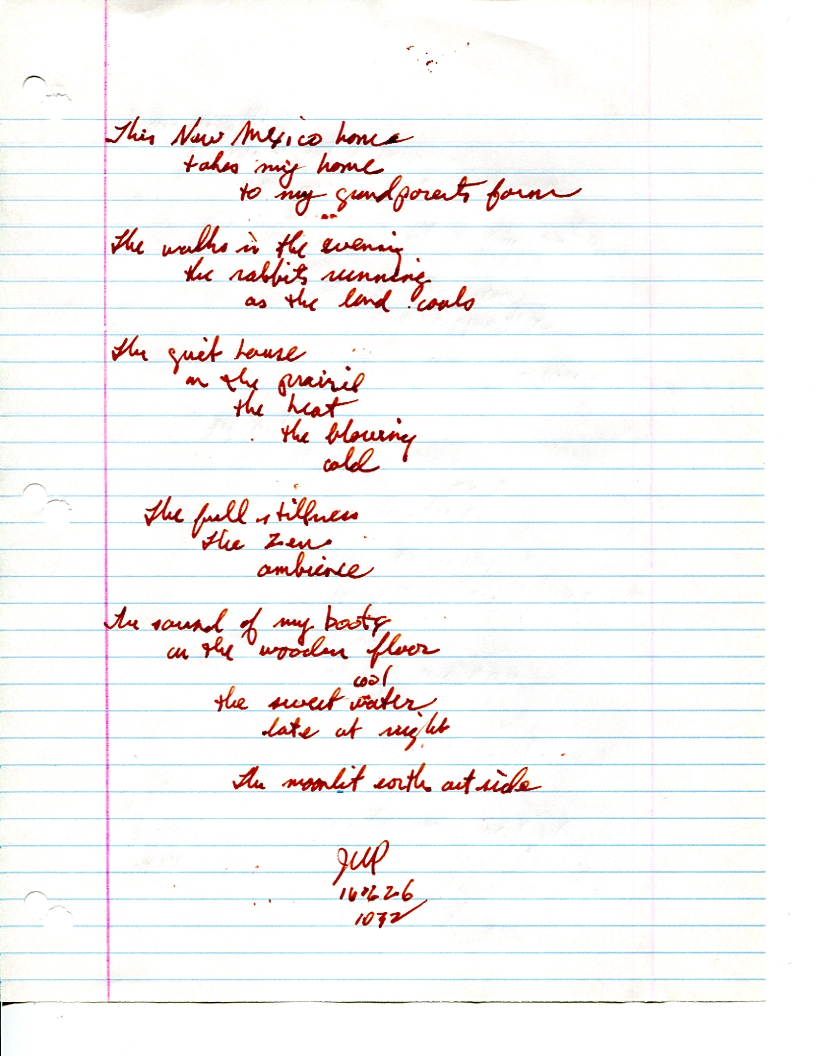 This New Mexico home
takes my home
to my grandparents farm
The walks in the evening
the rabbits running
as the land cools
The quiet house
on the prairie
the heat
the blowing
cold
The full stillness
the zen
ambience
The sound of my boots
on the wooden floor
cool
the sweet water
late at night
The moonlit earth outside
1032